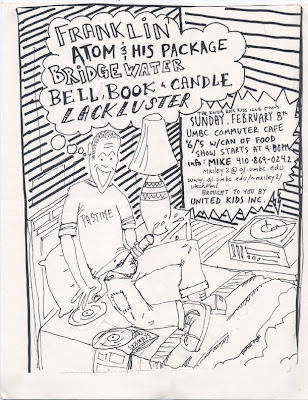 FRANKLIN
ATOM & HIS PACKAGE
BRIDGEWATER
BELL, BOOK & CANDLE
LACKLUSTER
SUNDAY, FEBRUARY 8th
UMBC COMMUTER CAFE
$6/5 W/CAN OF FOOD
SHOW STARTS AT 4:00PM
info: MIKE 410-869-0242
mriley2@gl.umbc.edu
www.gl.umbc.edu/~mriley2/
BROUGHT TO YOU BY
UNITED KIDS INC.
PASTIME